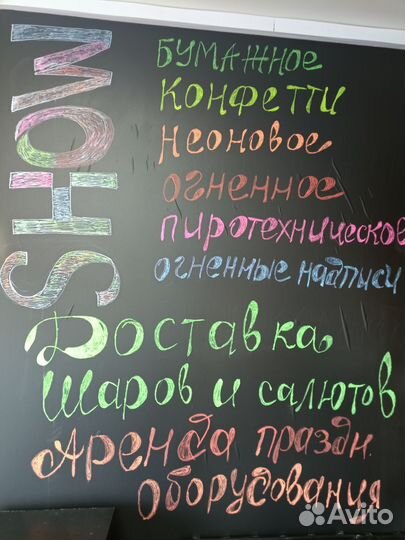 SHOW
БУМАЖНОЕ
КОНФЕТТИ
НЕОНОВОЕ
ОГНЕННОЕ
ПИРОТЕХНИЧЕСКОЕ
ОГНЕННЫЕ НАДПИСИ
Доставка
Шаров и салютов
Аренда праздн.
Оборудования
Avito